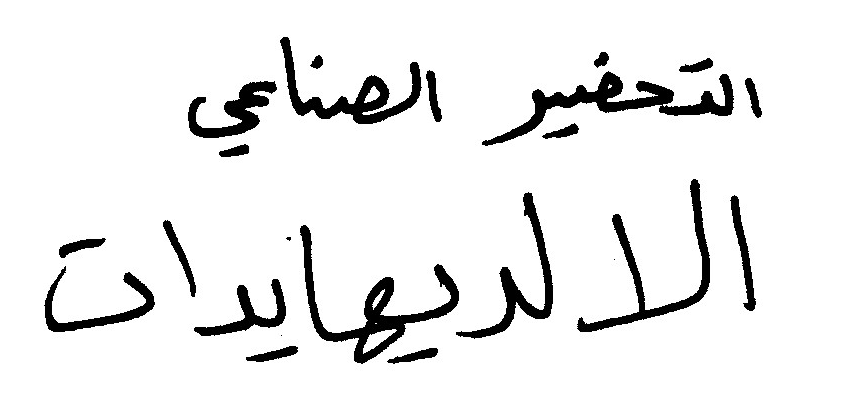 التحضير الصناعي
الالديهايدات